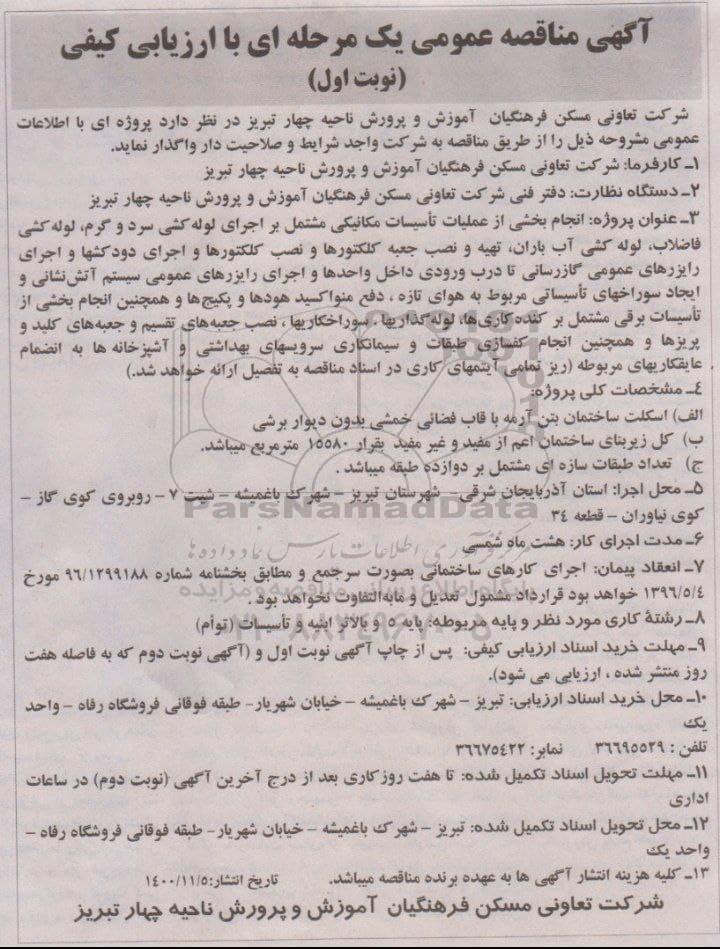 آگهی مناقصه عمومی یک مرحله ای با ارزیابی کیفی
(نوبت اول)
شرکت تعاونی مسکن فرهنگیان آموزش و پرورش ناحیه چهار تبریز در نظر دارد پروژه ای با اطلاعات
عمومی مشروحه ذیل را از طریق مناقصه به شرکت واجد شرایط و صلاحیت دار واگذار نماید.
۱ـ کارفرما: شرکت تعاونی مسکن فرهنگیان آموزش و پرورش ناحیه چهار تبریز
۲ـ دستگاه نظارت: دفتر فنی شرکت تعاونی مسکن فرهنگیان آموزش و پرورش ناحیه چهار تبریز
۳ـ عنوان پروژه: انجام بخشی از عملیات تأسیسات مکانیکی مشتمل بر اجرای لوله کشی سرد و گرم، لوله کشی
فاضلاب، لوله کشی آب باران، تهیه و نصب جعبه کلکتورها و نصب کلکتورها و اجرای دودکشها و اجرای
رایزرهای عمومی گازرسانی تا درب ورودی داخل واحدها و اجرای رایزرهای عمومی سیستم آتش‌نشانی و
ایجاد سوراخهای تأسیساتی مربوط به هوای تازه ، دفع منواکسید هودها و پکیج‌ها و همچنین انجام بخشی از
تأسیسات برقی مشتمل بر کننده‌کاری‌ها، لوله‌گذاریها ، سوراخکاریها ، نصب جعبه‌های تقسیم و جعبه‌های کلید و
پریزها و همچنین انجام کفسازی طبقات و سیمانکاری سرویسهای بهداشتی و آشپزخانه ها به انضمام
عایقکاریهای مربوطه (ریز تمامی آیتمهای کاری در اسناد مناقصه به تفصیل ارائه خواهد شد.)
۴ـ مشخصات کلی پروژه:
الف) اسکلت ساختمان بتن آرمه با قاب فضائی خمشی بدون دیوار برشی
ب) کل زیربنای ساختمان اعم از مفید و غیر مفید بقرار ۱۵۵۸۰ مترمربع میباشد.
ج) تعداد طبقات سازه ای مشتمل بر دوازده طبقه میباشد .
۵ـ محل اجرا: استان آذربایجان شرقی– شهرستان تبریز – شهرک باغمیشه – شیت ۷ – روبروی کوی گاز –
کوی نیاوران – قطعه ۳۴
ParsNamadData
۶ـ مدت اجرای کار: هشت ماه شمسی
مرکز فرآوری اطلاعات پارس نماد داده ها
۷ـ انعقاد پیمان: اجرای کارهای ساختمانی بصورت سرجمع و مطابق بخشنامه شماره ۹۶/۱۲۹۹۱۸۸ مورخ
۱۳۹۶/۵/۴ خواهد بود قرارداد مشمول تعدیل و مابه‌التفاوت نخواهد بود .
پایگاه اطلاع رسانی مناقصه و مزایده
۸ـ رشتهٔ کاری مورد نظر و پایه مربوطه: پایه ۵ و بالاتر ابنیه و تأسیسات (توأم)
۹ـ مهلت خرید اسناد ارزیابی کیفی: پس از چاپ آگهی نوبت اول و (آگهی نوبت دوم که به فاصله هفت
روز منتشر شده ، ارزیابی می شود).
۱۰ـ محل خرید اسناد ارزیابی: تبریز – شهرک باغمیشه – خیابان شهریار– طبقه فوقانی فروشگاه رفاه – واحد
یک
تلفن : ۳۶۶۹۵۵۲۹ نمابر: ۳۶۶۷۵۴۲۲
۱۱ـ مهلت تحویل اسناد تکمیل شده: تا هفت روزکاری بعد از درج آخرین آگهی (نوبت دوم) در ساعات
اداری
۱۲ـ محل تحویل اسناد تکمیل شده: تبریز – شهرک باغمیشه – خیابان شهریار– طبقه فوقانی فروشگاه رفاه –
واحد یک
۱۳ـ کلیه هزینه انتشار آگهی ها به عهده برنده مناقصه میباشد. تاریخ انتشار:۱۴۰۰/۱۱/۵
شرکت تعاونی مسکن فرهنگیان آموزش و پرورش ناحیه چهار تبریز